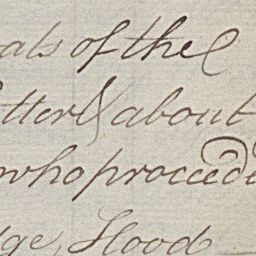 als of the
tter & about
who proceede
ge, Hood